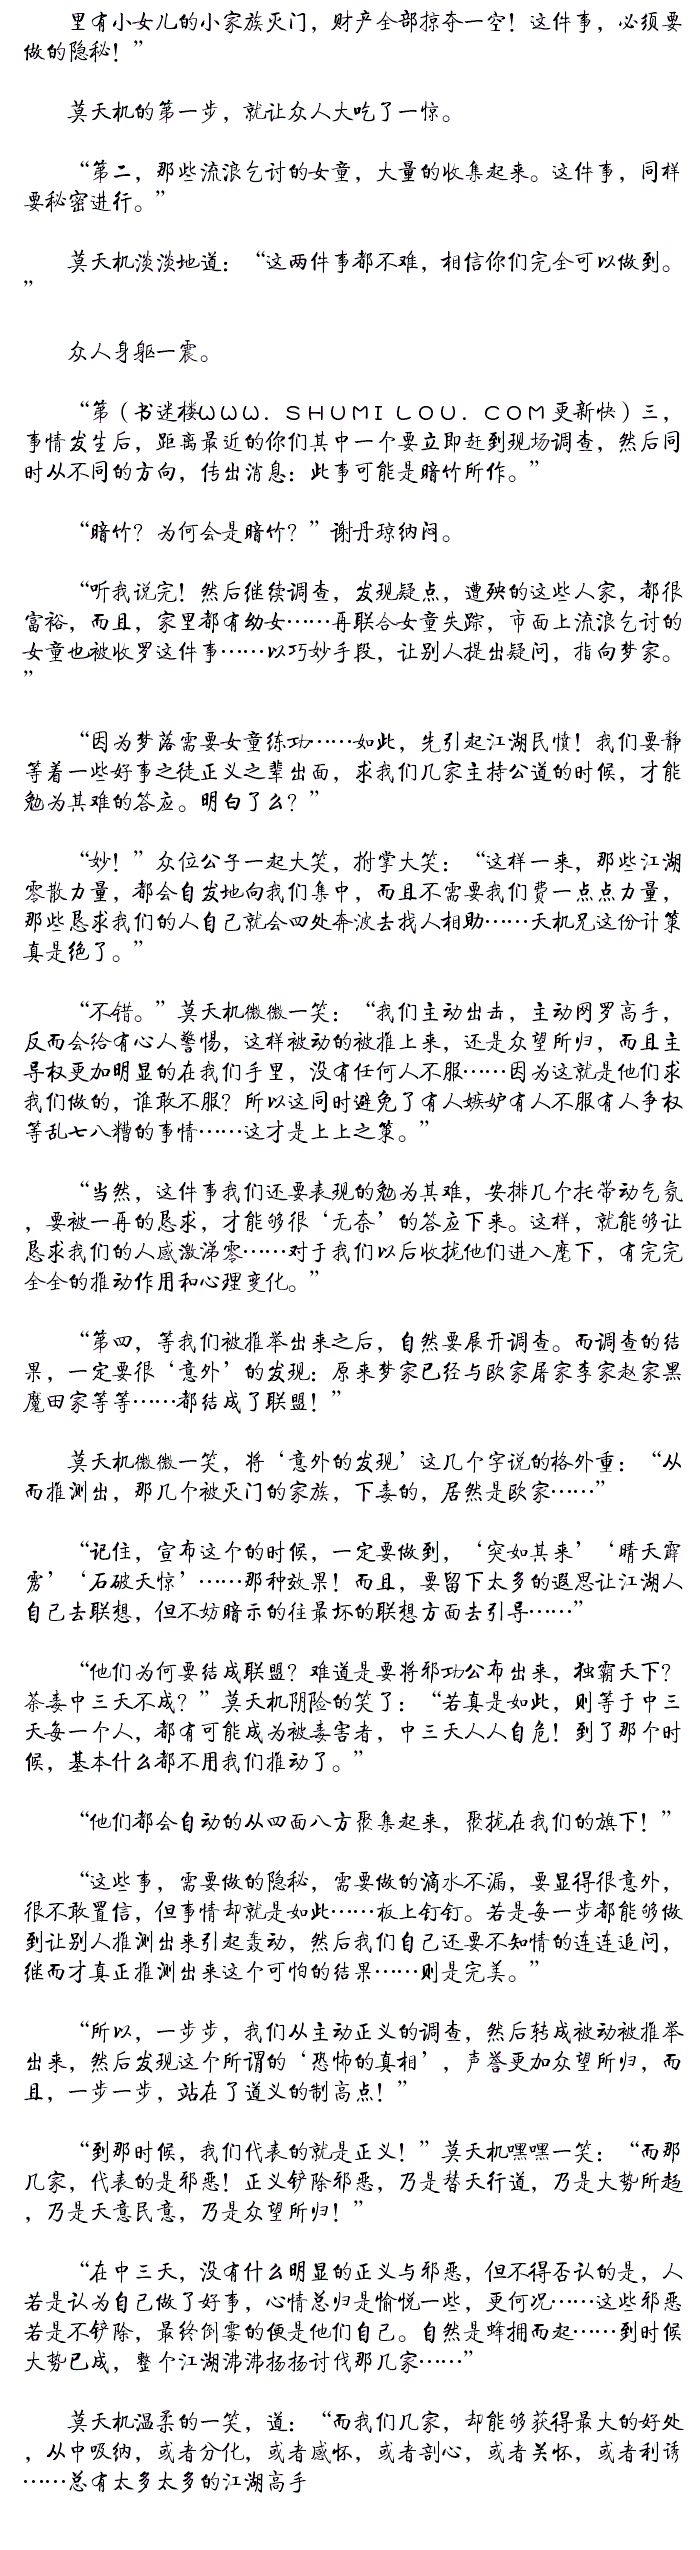 里有小女儿的小家族灭门，财产全部掠夺一空！这件事，必须要
做的隐秘！”
莫天机的第一步，就让众人大吃了一惊。
“第二，那些流浪乞讨的女童，大量的收集起来。这件事，同样
要秘密进行。”
莫天机淡淡地道：“这两件事都不难，相信你们完全可以做到。
”
众人身躯一震。
“第（书迷楼ωωω．ＳＨＵＭＩＬＯＵ．ＣＯＭ更新快）三，
事情发生后，距离最近的你们其中一个要立即赶到现场调查，然后同
时从不同的方向，传出消息：此事可能是暗竹所作。”
“暗竹？为何会是暗竹？”谢丹琼纳闷。
“听我说完！然后继续调查，发现疑点，遭殃的这些人家，都很
富裕，而且，家里都有幼女……再联合女童失踪，市面上流浪乞讨的
女童也被收罗这件事……以巧妙手段，让别人提出疑问，指向梦家。
”
“因为梦落需要女童练功……如此，先引起江湖民愤！我们要静
等着一些好事之徒正义之辈出面，求我们几家主持公道的时候，才能
勉为其难的答应。明白了么？”
“妙！”众位公子一起大笑，拊掌大笑：“这样一来，那些江湖
零散力量，都会自发地向我们集中，而且不需要我们费一点点力量，
那些恳求我们的人自己就会四处奔波去找人相助……天机兄这份计策
真是绝了。”
“不错。”莫天机微微一笑：“我们主动出击，主动网罗高手，
反而会给有心人警惕，这样被动的被推上来，还是众望所归，而且主
导权更加明显的在我们手里，没有任何人不服……因为这就是他们求
我们做的，谁敢不服？所以这同时避免了有人嫉妒有人不服有人争权
等乱七八糟的事情……这才是上上之策。”
“当然，这件事我们还要表现的勉为其难，安排几个托带动气氛
，要被一再的恳求，才能够很‘无奈’的答应下来。这样，就能够让
恳求我们的人感激涕零……对于我们以后收拢他们进入麾下，有完完
全全的推动作用和心理变化。”
“第四，等我们被推举出来之后，自然要展开调查。而调查的结
果，一定要很‘意外’的发现：原来梦家已经与欧家屠家李家赵家黑
魔田家等等……都结成了联盟！”
莫天机微微一笑，将‘意外的发现’这几个字说的格外重：“从
而推测出，那几个被灭门的家族，下毒的，居然是欧家……”
“记住，宣布这个的时候，一定要做到，‘突如其来’‘晴天霹
雳’‘石破天惊’……那种效果！而且，要留下太多的遐思让江湖人
自己去联想，但不妨暗示的往最坏的联想方面去引导……”
“他们为何要结成联盟？难道是要将邪功公布出来，独霸天下？
荼毒中三天不成？”莫天机阴险的笑了：“若真是如此，则等于中三
天每一个人，都有可能成为被毒害者，中三天人人自危！到了那个时
候，基本什么都不用我们推动了。”
“他们都会自动的从四面八方聚集起来，聚拢在我们的旗下！”
“这些事，需要做的隐秘，需要做的滴水不漏，要显得很意外，
很不敢置信，但事情却就是如此……板上钉钉。若是每一步都能够做
到让别人推测出来引起轰动，然后我们自己还要不知情的连连追问，
继而才真正推测出来这个可怕的结果……则是完美。”
“所以，一步步，我们从主动正义的调查，然后转成被动被推举
出来，然后发现这个所谓的‘恐怖的真相’，声誉更加众望所归，而
且，一步一步，站在了道义的制高点！”
“到那时候，我们代表的就是正义！”莫天机嘿嘿一笑：“而那
几家，代表的是邪恶！正义铲除邪恶，乃是替天行道，乃是大势所趋
，乃是天意民意，乃是众望所归！”
“在中三天，没有什么明显的正义与邪恶，但不得否认的是，人
若是认为自己做了好事，心情总归是愉悦一些，更何况……这些邪恶
若是不铲除，最终倒霉的便是他们自己。自然是蜂拥而起……到时候
大势已成，整个江湖沸沸扬扬讨伐那几家……”
莫天机温柔的一笑，道：“而我们几家，却能够获得最大的好处
，从中吸纳，或者分化，或者感怀，或者剖心，或者关怀，或者利诱
……总有太多太多的江湖高手